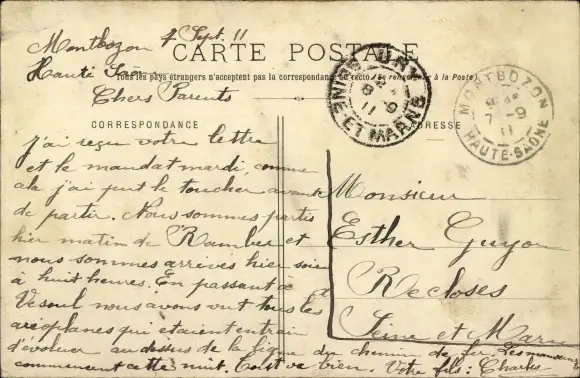 Montbozon 7 Sept. 11
CARTE POSTALE
Haute Saone
Tous les pays étrangers n'acceptent pas la correspondance au recto (Se renseigner à la Poste)
Chers Parents
CORRESPONDANCE
ADRESSE
J'ai reçu votre lettre
et le mandat mardi, comme
cela j'ai peut le toucher avant
de partir. Nous sommes partis
hier matin de Ramber et
nous sommes arrivés hier soir
à huit heures. En passant à
Vesoul nous avons vut tous les
aréoplanes qui étaient entrain
d'évoluer au dessus de la ligne du chemin de fer. Les manœuvres
commencent cette nuit. Tout va bien. Votre fils: Charles
Monsieur
Esther Guyon
Recloses
Seine et Marne
URY
8 -9
11
SEINE-ET-MARNE
MONTBOZON
7 -9
11
HAUTE-SAONE